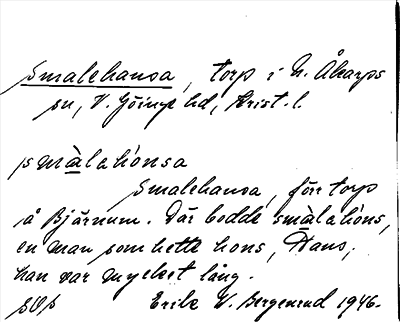 Smalehansa, torp i N. Åkarps
sn, V. Göinge hd, Krist. l.
smàlahònsa
Smalehansa, förr torp
på Bjärnum. Där bodde smàlahòns,
en man som hette hons, Hans,
han var mycket lång.
Erik W. Bergenrud 1946.